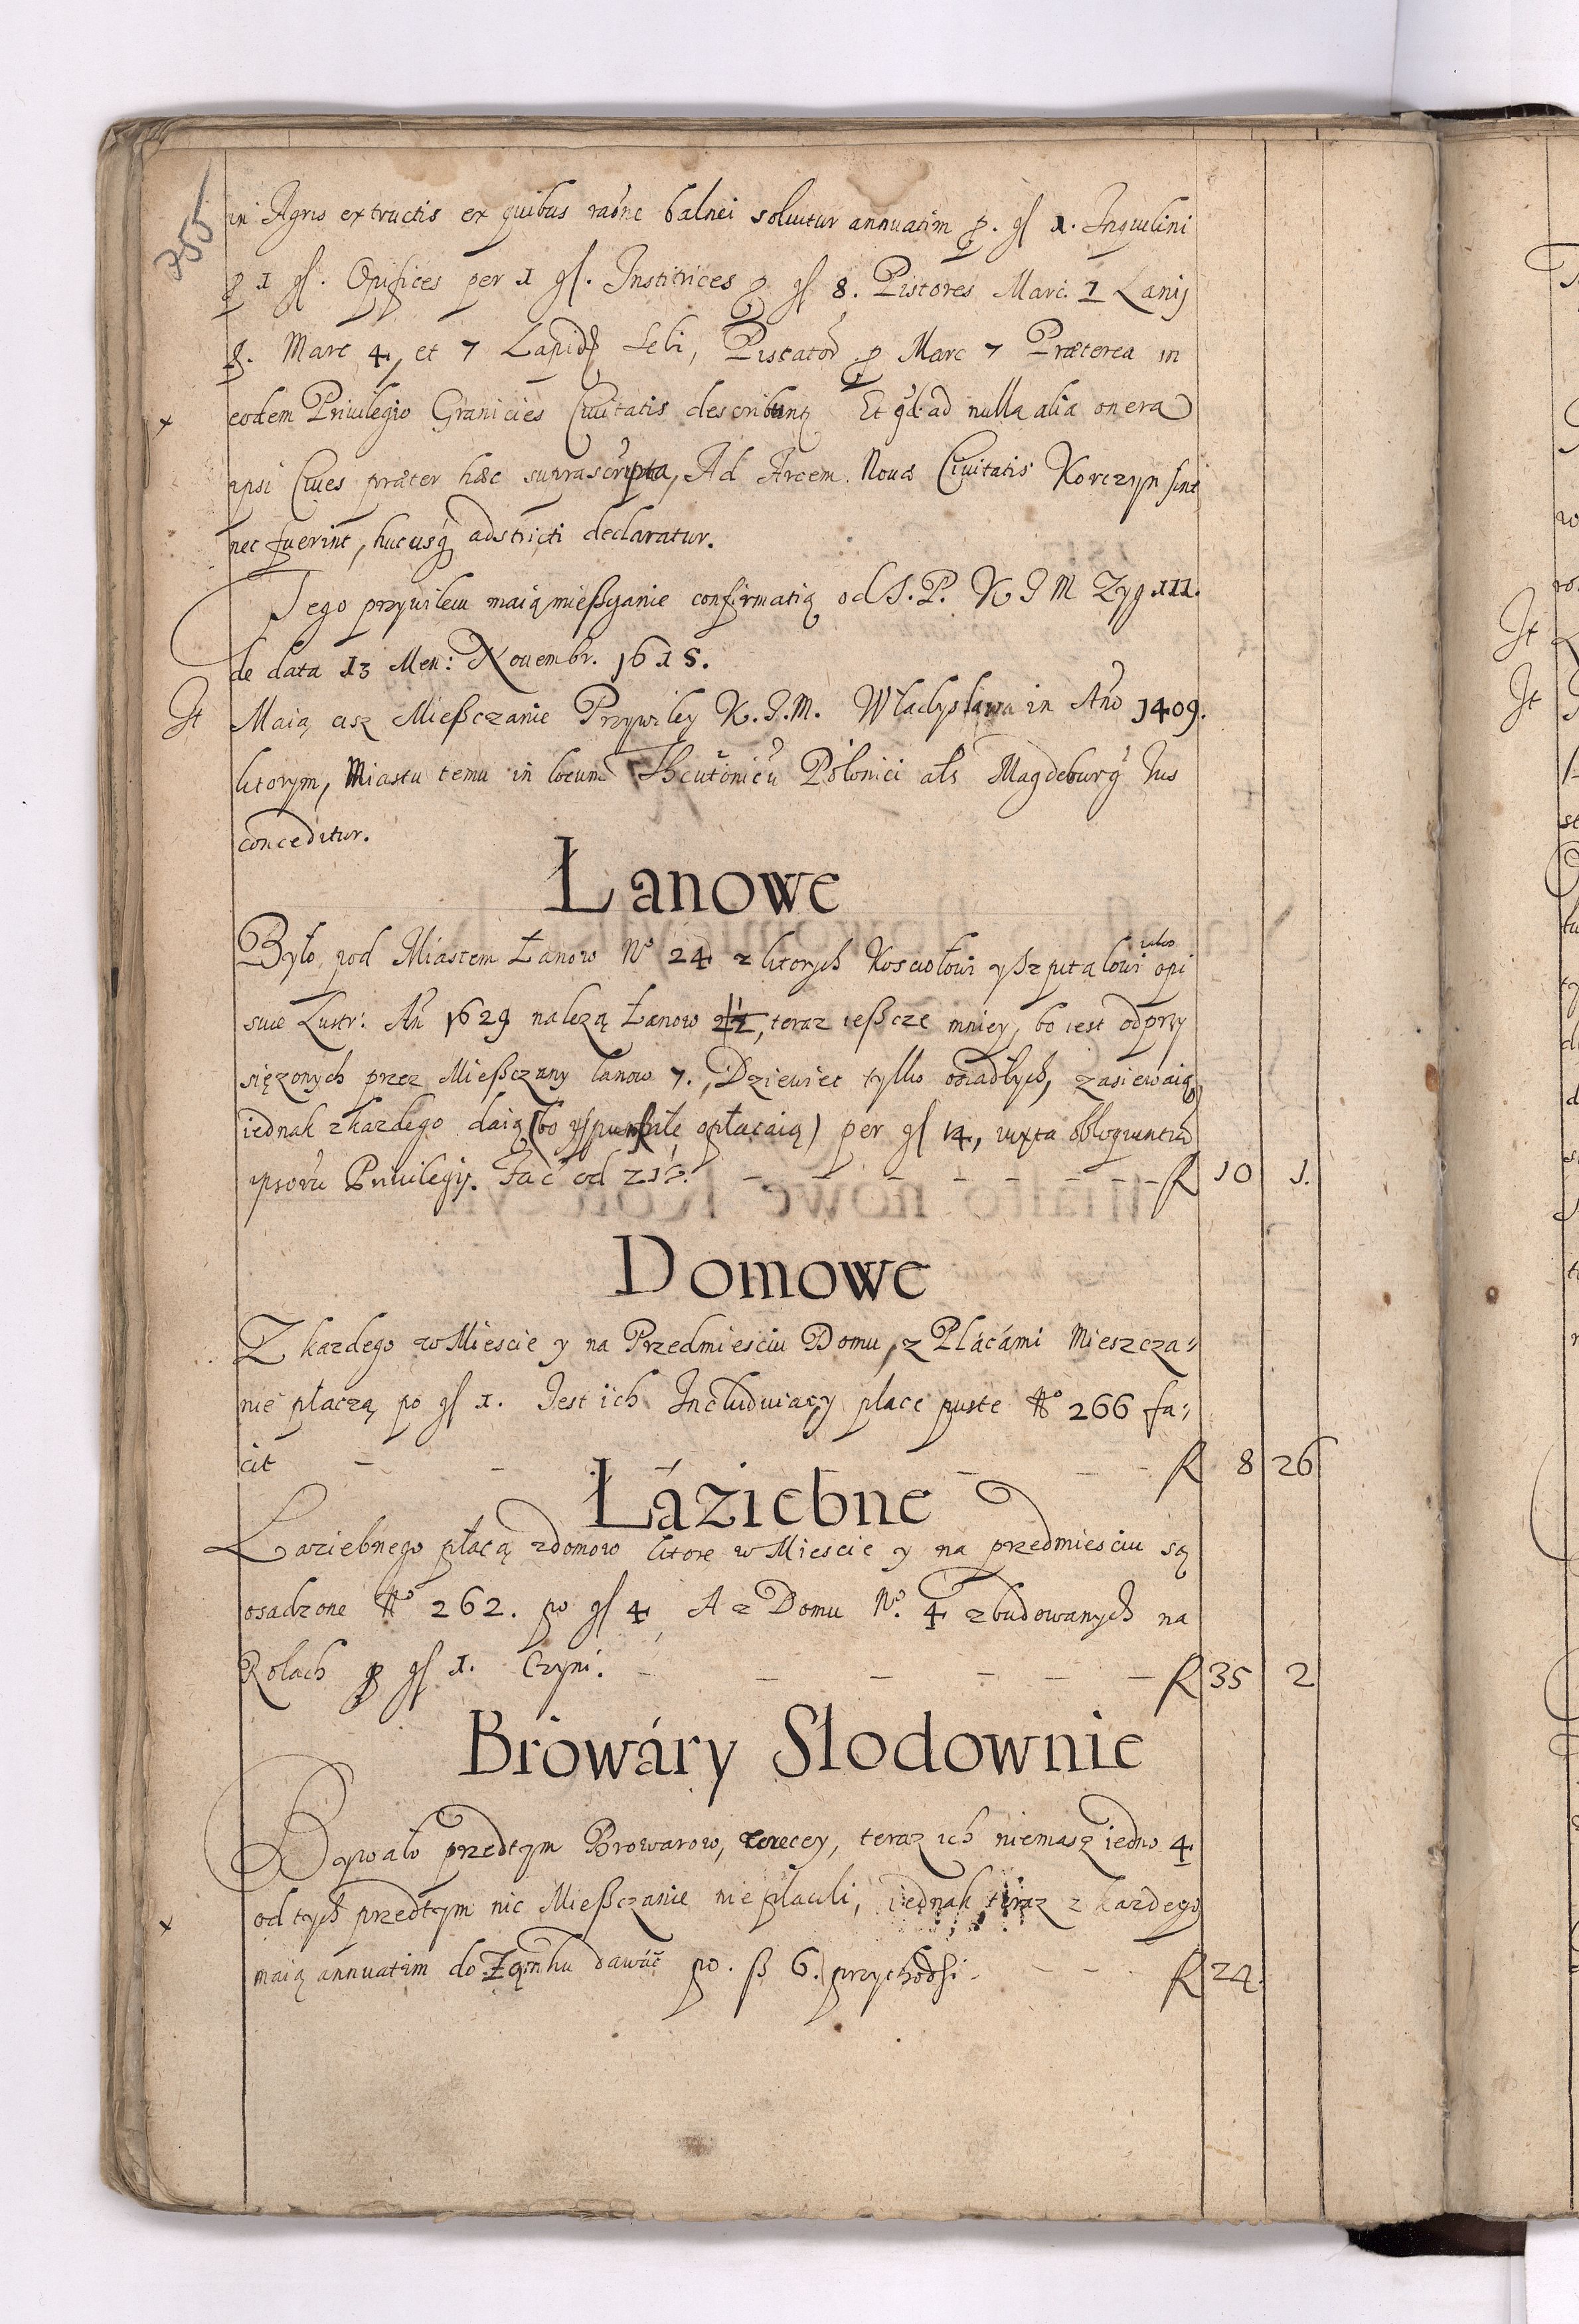 755
in Agris extructis ex quibus raõne balnei soluitur annuatim p. gſ 1. Inquilini
p 1 gſ. Opifices per 1 gſ. Institrices p gſ 8. Pistores Marc. 1 Lanij
p. Marc 4, et 7 Lapid Sebi, Piscator p Marc 7 Præterea in
eodem Priuilegio Granicies Ciuitatis describunt Et qd ad nulla alia onera
ipsi Ciues præter hæc suprascripta, Ad Arcem Noua Ciuitatis Korczyn sint
nec fuerint, hucusq adstricti declaratur.
Tego przywileiu maią mießczanie confirmatią od S. P. K J M Zyg. III.
de data 13 Men: Nouembr. 1615.
It Maią tesz Mießczanie Przywiley K. J. M. Władysława in Año 1409.
ktorym, Miastu temu in locum Theutonicu Polonici als Magdeburg Ius
conceditur.
Łanowe
Było pod Miastem Łanow No 24 z ktorych Kosciołowi y Szpitalowi iako opi
suie Lustr: An 1629 nalezą Łanow 2½, teraz ießcze mniey, bo iest odprzy
sięzonych przez Mießczany lanow 7. Dziewiec tylko osiadłych, zasiewaią
iednak z kazdego daią (bo y puste opłacaią) per gſ 14, iuxta obloquentia
ipsoru Priuilegij. Fac od 21½. R 10 1.
Domowe
Z kazdego w Miescie y na Przedmiesciu Domu, z Plácámi Mieszcza-
nie płaczą po gſ 1. Iest ich Includuiący place puste No 266 fa-
cit R 8 26
Łáziebne
Łaziebnego płacą z domow ktore w Miescie y na przedmiesciu są
osadzone No 262. po gſ 4 A z Domu No. 4 zbudowanych na
Rolach p gſ 1. Czyni. R 35 2
Browáry Słodownie
Bywało przedtym Browarow, wiecey, teraz ich niemasz iedno 4
od tych przedtym nic Mießczanie nie płacili, iednak teraz z kazdego
maią annuatim do Zamku dawać po. ß 6. przychodzi R 24.